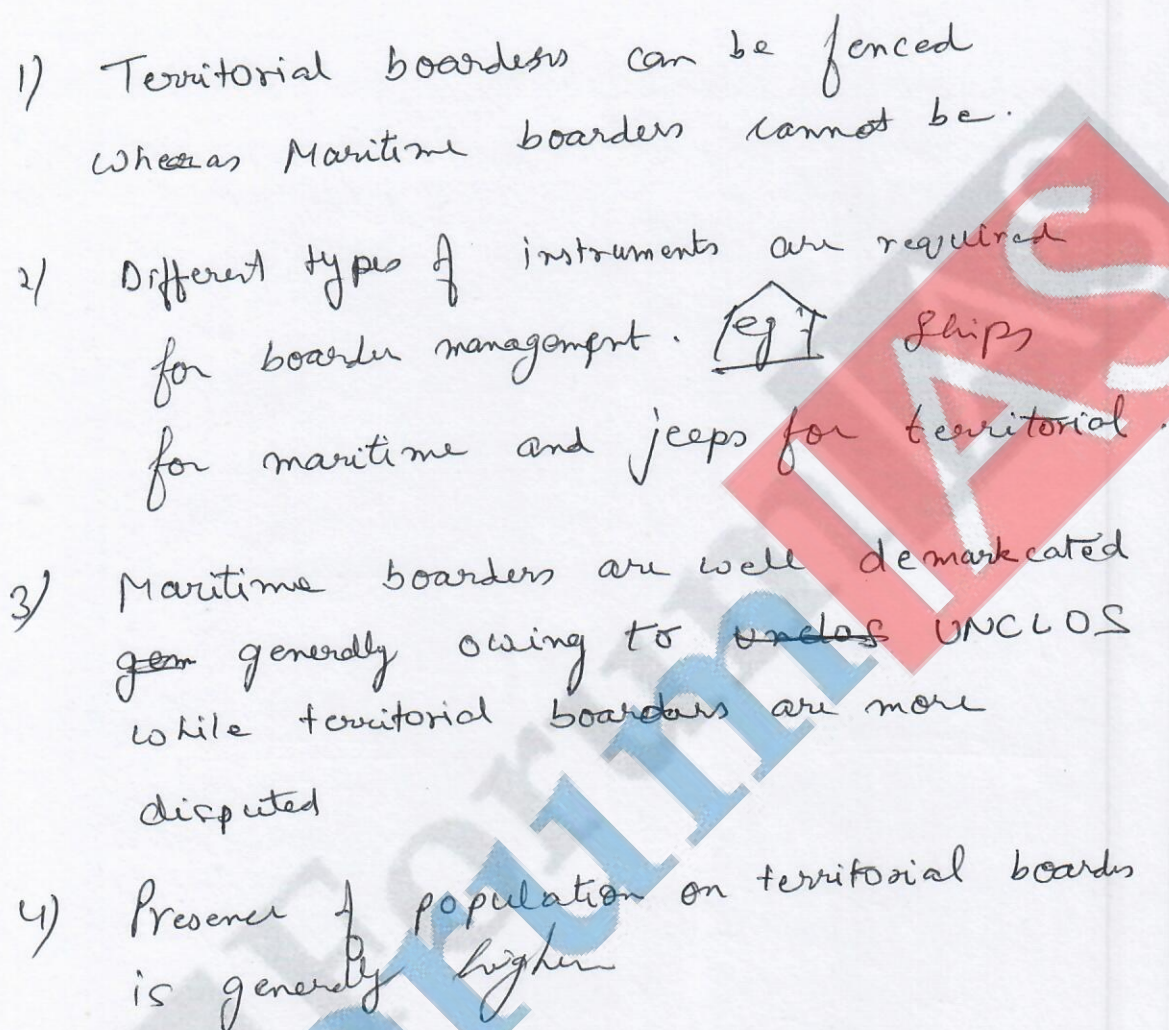 1) Territorial boarders can be fenced
wheras Maritime boarders cannot be.
2) Different types of instruments are required
for boarder management. eg: ships
for maritime and jeeps for territorial.
3) Maritime boarders are well demarkcated
gem generally owing to unclos UNCLOS
while territorial boardars are more
disputed
4) Presence of population on territorial boards
is generally higher
Forum IAS